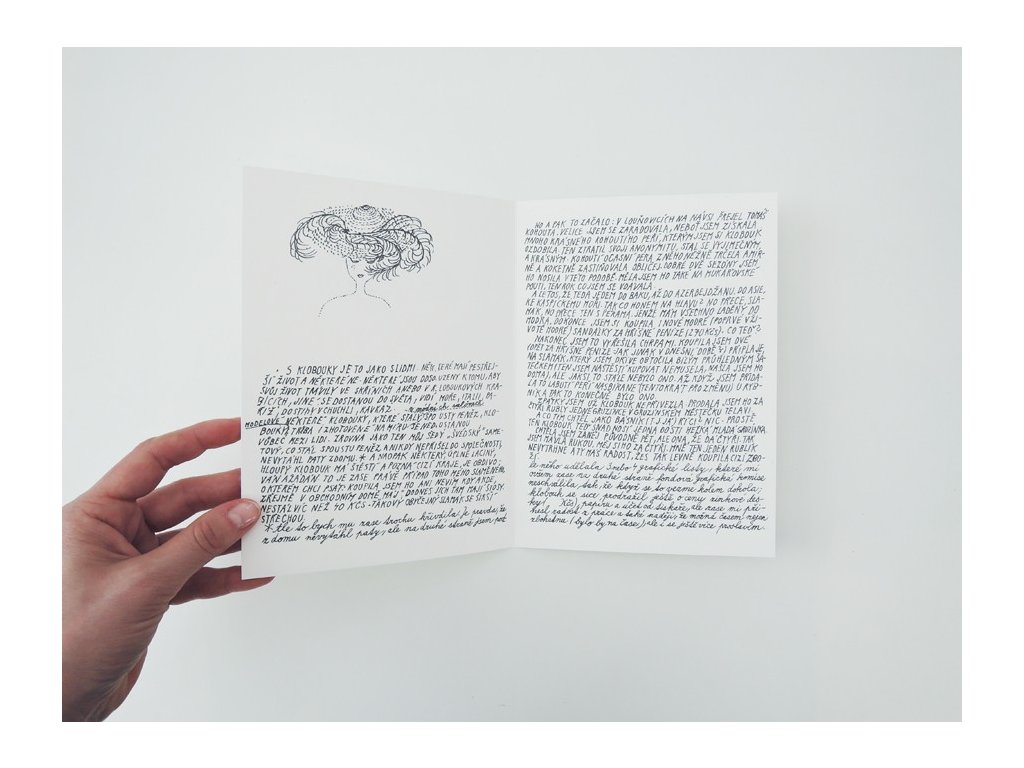 . S KLOBOUKY JE TO JAKO S LIDMI. NĚKTERÉ MAJÍ PESTŘEJ-
ŠÍ ŽIVOT A NĚKTERÉ NE. NĚKTERÉ JSOU ODSOUZENY K TOMU, ABY
SVŮJ ŽIVOT TRÁVILY VE SKŘÍNÍCH ANEBO V KLOBOUKOVÝCH KRA-
BICÍCH, JINÉ SE DOSTANOU DO SVĚTA, VIDÍ MOŘE, ITÁLII, PA-
ŘÍŽ, DOSTIHY V CHUCHLI, KAVKAZ.
MODELOVÉ NĚKTERÉ KLOBOUKY, KTERÉ STÁLY TŘEBA DOSTI PENĚZ, KLO-
BOUKY TŘEBA I ZHOTOVENÉ NA MÍRU SE NEDOSTANOU
VŮBEC MEZI LIDI. ZROVNA JAKO TEN MŮJ ŠEDÝ „ŠVÉDSKÝ“ SAME-
TOVÝ, CO STÁL SPOUSTU PENĚZ A NIKDY NEPŘIŠEL DO SPOLEČNOSTI,
NEVYTÁHL PATY Z DOMU. * A NAOPAK NĚKTERÝ, ÚPLNĚ LACINÝ,
HLOUPÝ KLOBOUK MÁ ŠTĚSTÍ A POZNÁ CIZÍ KRAJE, JE OBDIVO-
VÁN A ŽÁDÁN. TO JE ZASE PRÁVĚ PŘÍPAD TOHO MÉHO SLAMĚNÉHO
O KTERÉM CHCI PSÁT. KOUPILA JSEM HO ANI NEVÍM KDY A KDE,
ZŘEJMĚ V OBCHODNÍM DOMĚ MÁJ, DODNES JICH TAM MAJÍ STOSY.
NESTÁL VÍC NEŽ 40 KČS. TAKOVÝ OBYČEJNÝ SLAMÁK SE ŠIRŠÍ
STŘECHOU.
* tak to bych mu zase trochu křivdila. Je pravda, že
z domu nevytáhl paty, ale na druhé straně jsem pod
NO A PAK TO ZAČALO: V LOUŇOVICÍCH NA NÁVSI PŘEJEL TOMÁŠ
KOHOUTA. VELICE JSEM SE ZARADOVALA, NEBOŤ JSEM ZÍSKALA
MNOHO KRÁSNÉHO KOHOUTÍHO PEŘÍ, KTERÝM JSEM SI KLOBOUK
OZDOBILA. TEN ZTRATIL SVOJI ANONYMITU, STAL SE VÝJIMEČNÝM,
A KRÁSNÝM. KOHOUTÍ OCASNÍ PERA Z NĚHO NĚŽNĚ TRČELA A MÍR-
NĚ A KOKETNĚ ZASTIŇOVALA OBLIČEJ. DOBRÉ DVĚ SEZÓNY JSEM
HO NOSILA V TÉTO PODOBĚ. MĚLA JSEM HO TAKÉ NA MUKAŘOVSKÉ
POUTI, TEN ROK CO JSEM SE VDÁVALA.
A LETOS, ŽE TEDA JEDEM DO BAKU, AŽ DO AZERBEJDŽANU, DO ASIE,
KE KASPICKÉMU MOŘI. TAK CO HONEM NA HLAVU? NO PŘECE, SLA-
MÁK, NO PŘECE TEN S PÉRAMA. JENŽE MÁM VŠECHNO LADĚNÝ DO
MODRA, DOKONCE JSEM SI KOUPILA I NOVÉ MODRÉ (POPRVÉ V ŽI-
VOTĚ MODRÉ) SANDÁLKY ZA HŘÍŠNÉ PENÍZE (270 KČS). CO TEĎ?
NAKONEC JSEM TO VYŘEŠILA CHRPAMI. KOUPILA JSEM DVĚ
(OPĚT ZA HŘÍŠNÉ PENÍZE JAK JINAK V DNEŠNÍ DOBĚ) A PŘIPLA JE,
NA SLAMÁK, KTERÝ JSEM DŘÍVE OBTOČILA BÍLÝM PRŮHLEDNÝM ŠÁ-
TEČKEM (TEN JSEM NAŠTĚSTÍ KUPOVAT NEMUSELA, NAŠLA JSEM HO
DOMA). ALE JAKSI TO STÁLE NEBYLO ONO. AŽ KDYŽ JSEM PŘIDA-
LA TO LABUTÍ PEŘÍ NASBÍRANÉ (TENTOKRÁT MEZI MĚNU) U RYB-
NÍKA PAK TO KONEČNĚ BYLO ONO.
ZPÁTKY JSEM UŽ KLOBOUK NEPŘIVEZLA. PRODALA JSEM HO ZA
ČTYŘI RUBLY JEDNÉ GRUZÍNCE V GRUZÍNSKÉM MĚSTEČKU TELAVI.
A CO TÍM CHTĚL JAKO BÁSNÍK (I JÁ) ŘÍCI? NIC. PROSTĚ,
TEN KLOBOUK TEM SNAD NOSÍ JEDNA DOSTI HEZKÁ MLADÁ GRUZÍNKA.
CHTĚLA JSEM ZA NĚJ PŮVODNĚ PĚT, ALE ONA, ŽE DÁ ČTYŘI, TAK
JSEM MÁVLA RUKOU. MĚJ SI HO ZA ČTYŘI, MNĚ TEN JEDEN RUBLÍK
NEVYTRHNE A TY MÁŠ RADOST, ŽES TAK LEVNĚ KOUPILA CIZÍ ZBO-
ŽÍ.
le něho udělala 3 nebo 4 grafické listy, které mi
ovšem zase na druhé straně fondová grafická komise
neschválila, tak, že když se to vezme kolem dokola,
klobouk se sice prodražil ještě o cenu zinkové des-
ky, papíru a účet od tiskaře, ale zase mi při-
nesl radost z práce a také naději, že možná časem nejen
zbohatnu (bylo by na čase) ale i se ještě více proslavím.